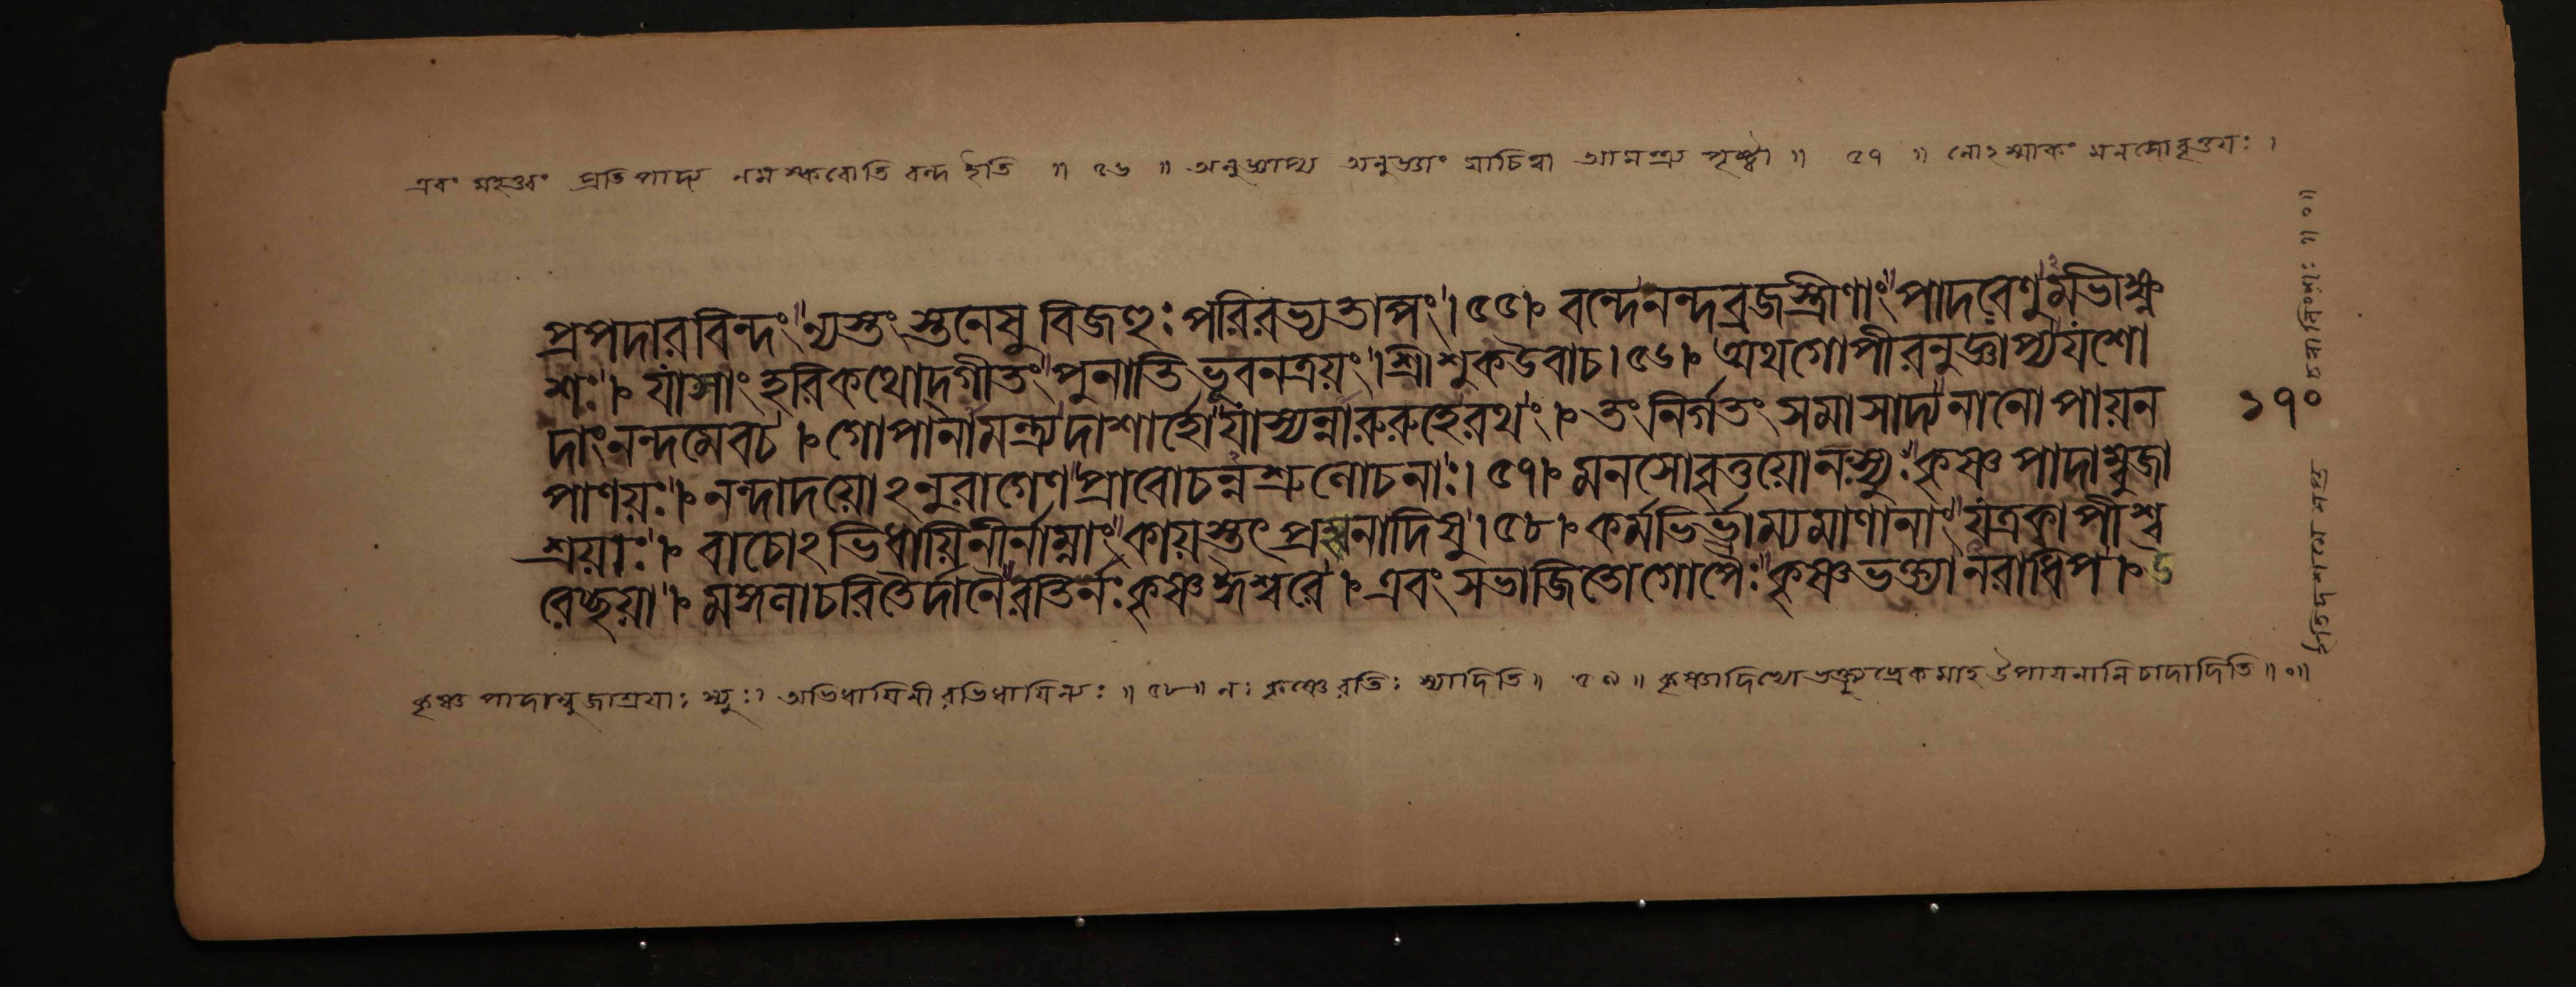 এবং মহত্ত্বং প্রতিপাদ্য নমস্করোতি বন্দ ইতি ॥ ৫৬ ॥ অনুজ্ঞাপ্য অনুজ্ঞাং যাচিত্বা আমন্ত্র্য পৃষ্ট্বা ॥ ৫৭ ॥ নোঽস্মাকং মনসোবৃত্তয়ঃ ।
প্রপদারবিন্দং ন্যস্তং স্তনেষু বিজহুঃ পরিরভ্য তাপং । ৫৫ । বন্দেনন্দব্রজস্ত্রীণাং পাদরেণুমভীক্ষ্ণ
শঃ । যাসাং হরিকথোদ্গীতং পুনাতি ভুবনত্রয়ং । শ্রীশুকউবাচ । ৫৬ । অথগোপীরনুজ্ঞাপ্যযশো
দাংনন্দমেবচ । গোপানামন্ত্র্যদাশার্হোযাস্যন্নারুরুহেরথং । তংনির্গতং সমাসাদ্যনানোপায়ন
পাণয়ঃ । নন্দাদয়োঽনুরাগেণপ্রাবোচন্নশ্রুলোচনাঃ । ৫৭ । মনসোবৃত্তয়োনঃস্যুঃ কৃষ্ণপাদাম্বুজা
শ্রয়াঃ । বাচোঽভিধায়িনীর্নাম্নাং কায়স্তৎপ্রহ্বনাদিষু । ৫৮ । কর্মভির্ভ্রাম্যমাণানাং যত্রক্বাপীশ্ব
রেচ্ছয়া । মঙ্গলাচরিতৈর্দানৈরতির্নঃকৃষ্ণঈশ্বরে । এবং সভাজিতোগোপৈঃ কৃষ্ণভক্ত্যানরাধিপ । উ
কৃষ্ণপাদাম্বুজাশ্রয়াঃ স্যুঃ । অভিধায়িনীরভিধায়িন্যঃ ॥ ৫৮ ॥ নঃ কৃষ্ণেরতিঃ স্যাদিতি ॥ ৫৯ ॥ উপায়নানিচাদাদিতি ॥ ০ ॥
১৭০
ইতি দশমে সপ্ত
চত্বারিংশঃ ॥ ০ ॥